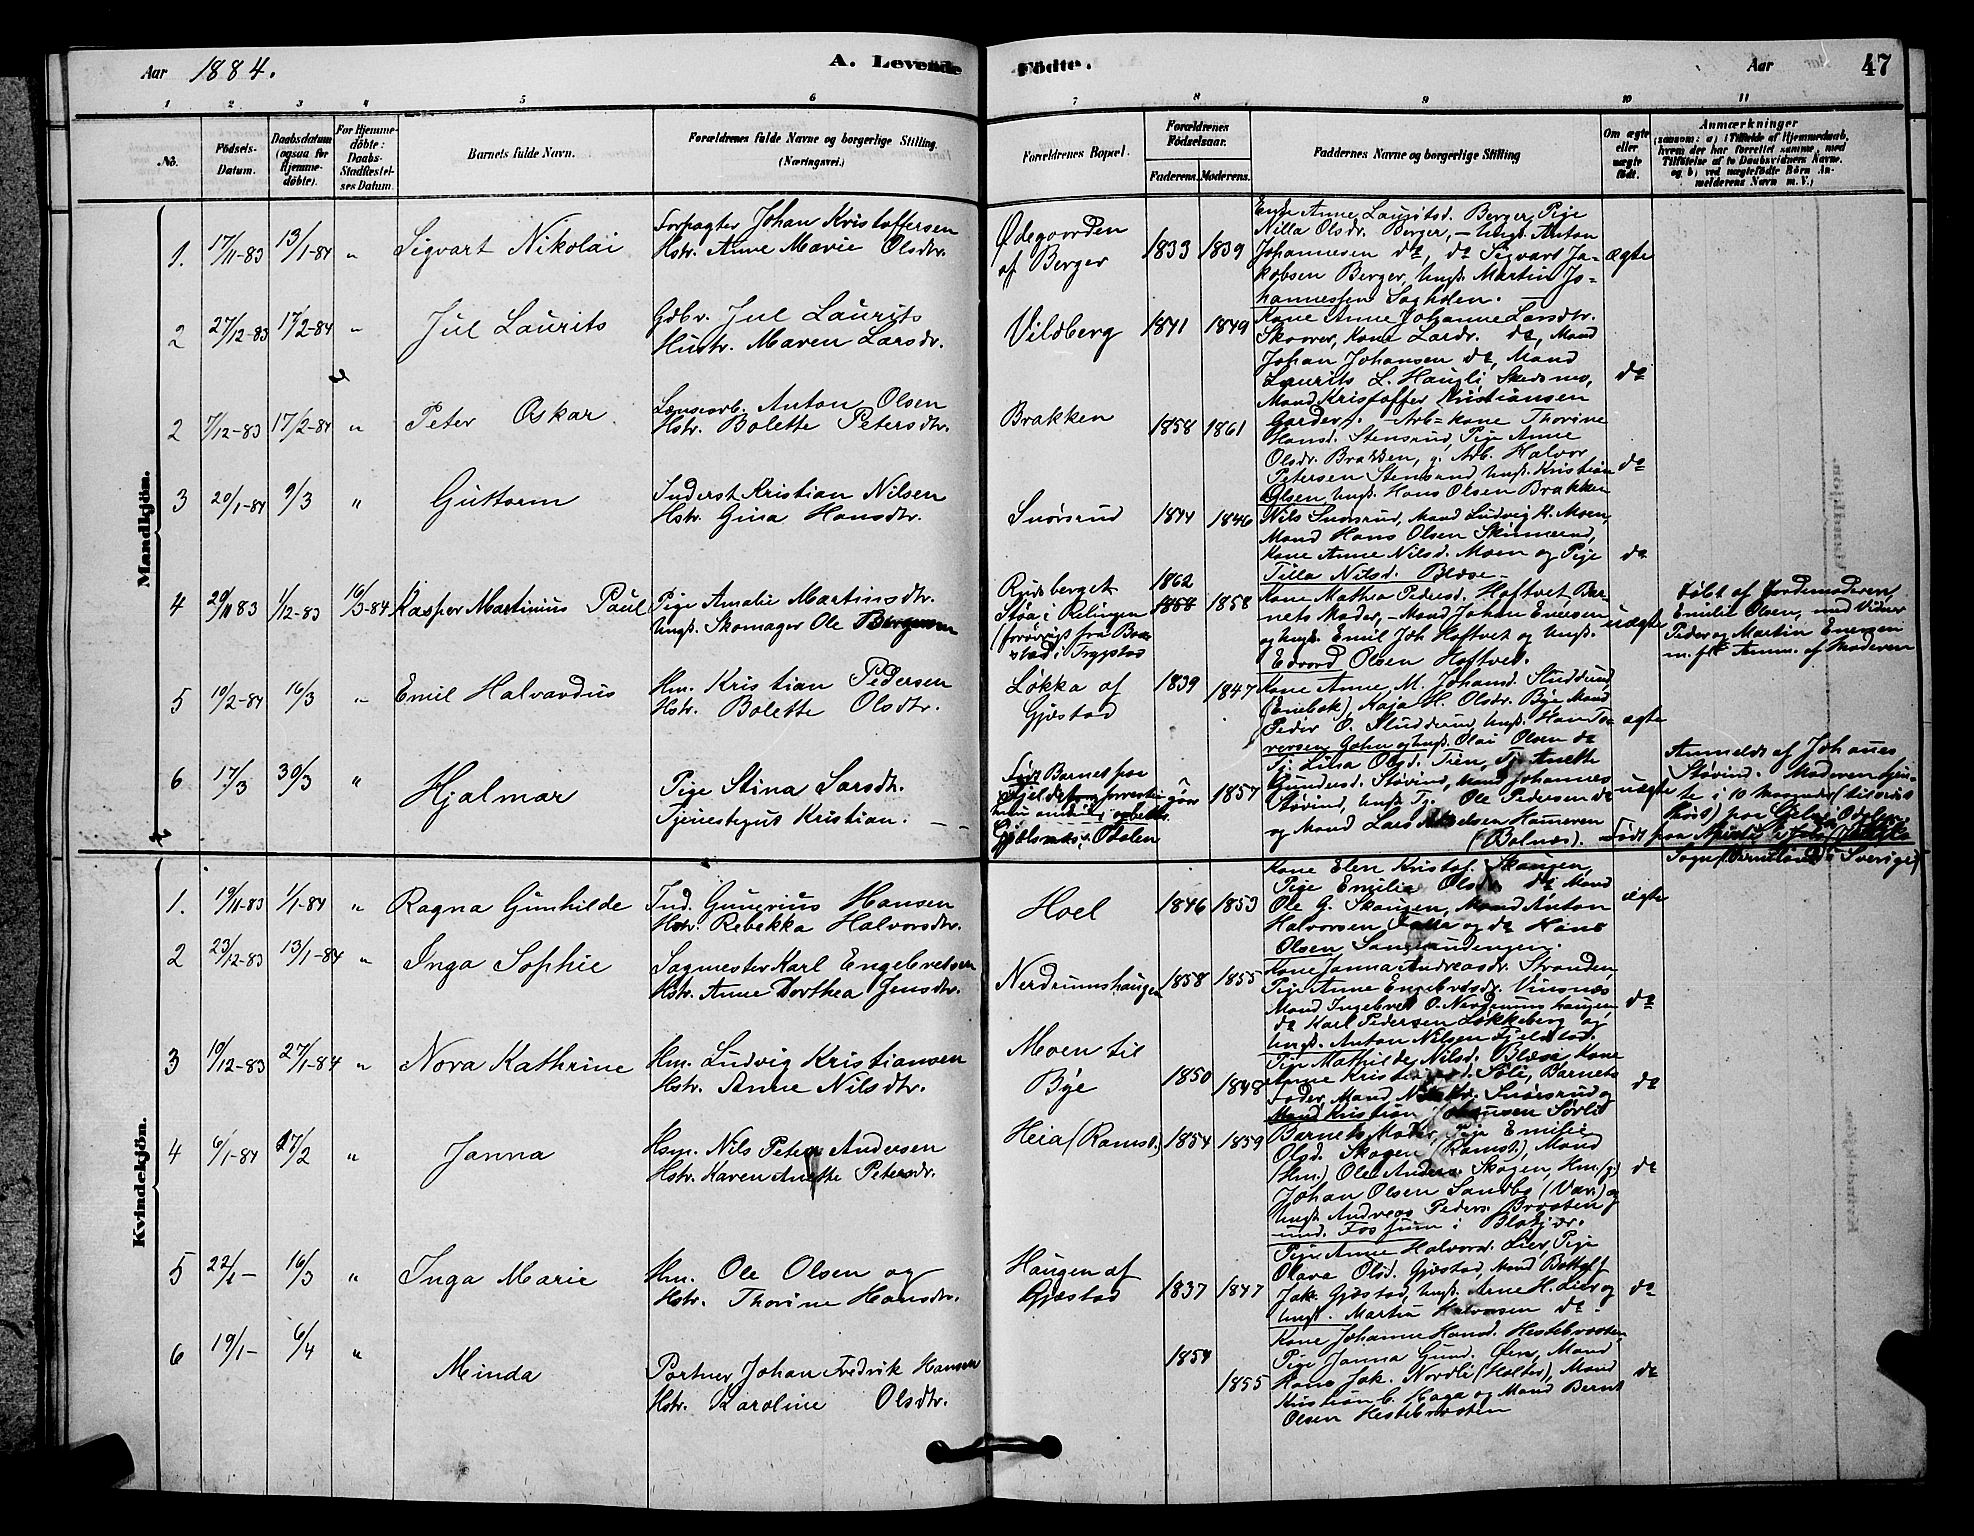 Aar 1884. A. Levende Fødte. Aar 47
1 2 3 4 5 6 7 8 9 10 11
No.
Fødsels-Datum.
Daabsdatum (ogsaa for Hjemmedøbte).
For Hjemmedøbte: Daabs-Stadfæstelses Datum.
Barnets fulde Navn.
Forældrenes fulde Navne og borgerlige Stilling. (Næringsvei.)
Forældrenes Bopæl.
Forældrenes Fødselsaar.
Faderens. Moderens.
Faddernes Navne og borgerlige Stilling
Om ægte eller uægte født.
Anmærkninger
(saasom: a) i Tilfælde af Hjemmedaab,
hvem der har forrettet samme, med
Tilføielse af to Daabsvidners Navne.
og b) ved uægtefødte Børn An-
melderens Navn m. V.)
Mandkjøn.
1. 17/11-83 13/1-84 " Sigvart Nikolai
Forpagter Johan Kristoffersen
Hstr. Anne Marie Olsdtr.
Ødegaarden
af Berger
1833 1839
Enke Anne Lauritsd. Berger, Pige
Nilla Olsdr. Berger, – Ungk. Anton
Johannesen do, do Sigvart Ja-
kobsen Berger, Ungk. Martin Jo-
hannessen Sagholen.
ægte
2 27/12-83 17/2-84 " Jul Laurits
Gdbr. Jul Laurits
Hustr. Maren Larsdr.
Vildberg
1841 1849
Kone Anne Johanne Larsdtr.
Skaarer, Kone Larsdr. do, Mand
Johan Johansen do, Mand
Laurits L. Haugli, Skedsmo,
Mand Kristoffer Kristiansen
do
2 7/12-83 17/2-84 " Peter Oskar
Lænsearb. Anton Olsen
Hstr. Bolette Petersdtr.
Brakken
1858 1861
Garder. – Arb-kone Thorine
Hansd. Stensrud, Pige Anne
Olsdr. Brakken, g. Arb. Halvor
Petersen Stensrud Ungk. Kristian
Olsen, Ungk. Hans Olsen Brakken
do
3 20/1-84 9/3 " Guttorm
Inderst Kristian Nilsen
Hstr. Gina Hansdtr.
Snørsrud
1844 1846
Nils Snørsrud, Mand Ludvig K. Moen,
Mand Hans Olsen Skinnerud,
Kone Anne Nilsd. Moen og Pige
Tilla Nilsd. Blæse –
do
4 29/11 83 1/12-83 16/3-84 Kasper Martinius Paul
Pige Amalie Martinsdtr.
Ungk. Skomager Ole Bergersen
Rudsberget
Støa i Relingen
(forøvrigt fra Baa-
stad i Trygstad
1862
1858 1858
Kone Mathea Pedersd. Hoftvet Bar-
nets Moder, – Mand Johan Enersen
og Ungk. Emil Joh Hoftvet og Ungk.
Edvard Olsen Hoftvet.
uægte
døbt af Jordemoderen,
Emilie Olsen, med Vidner
Peder og Martin Enersen
Anm. af Moderen
5 19/2-84 16/3 " Emil Halvardus
Hm. Kristian Pedersen
Hstr. Bolette Olsdtr.
Løkka af
Gjestad
1839 1847
Kone Anne M. Johansd. Sludderud
(Enebak) Kaja H. Olsdr. Bye Mand
Peder O. Sludderud, Ungk. Han To-
versen og Ungk. Olai Olsen do
ægte
6 17/3 30/3 " Hjalmar
Pige Stina Larsdtr.
Tjenestegut Kristian. –
Født Barnet paa
Odalen
1857
Tj. Lina Olsd. Tien, Tj Anette
Gundersd. Støvind, Mand Johannes
Støvind, Ungk Tj. Ole Pedersen do
og Mand Lars Hammeren
(Bolnæs).
uægte
Anmeldt af Johanes
Støvind. Moderen tjen-
te i 10 Maaneder
i Odalen
Født paa
Sogn i Sverige
Kvindekjøn.
1. 19/11-83 1/1-84 " Ragna Gunhilde
Ind. Gunerius Hansen
Hstr. Rebekka Halvorsdtr.
Hoel
1846 1853
Kone Elen Kristof. Skaugen,
Pige Emilie Olsdr. do Mand
Ole G. Skaugen, Mand Anton
Halvorsen Falla og do Hans
Olsen
ægte
2 23/12-83 13/1-84 " Inga Sophie
Sagmester Karl Engebretsen
Hstr. Anne Dorthea Jensdtr.
Nerdrumshaugen
1858 1855
Kone Janna Andreasdr. Stranden,
Pige Anne Engebretsdr. Vinsnæs
Mand Ingebret O. Nerdrumshaugen
do Karl Pedersen Løkkeberg og
Ungk. Anton Nilsen Fjeldstad.
do
3 19/12-83 27/1-84 " Nora Kathrine
Hm. Ludvig Kristiansen
Hstr. Anne Nilsdtr.
Moen til
Bye
1850 1848
Pige Mathilde Nilsd. Blæse Kone
Anne Kristiansd. Soli, Barnets
Fader, Mand Nils Kr. Snørsrud og
Mand Kristian Johansen Sørli
do
4 6/1-84 17/2 " Janna
Hsm. Nils Peter Andersen
Hstr. Karen Anette Petersdr.
Heia (Ramst.)
1854 1859
Barnets Moder, Pige Emilie
Olsd. Skogen (Ramst.), Mand
(Hm.) Ole Anders. Skogen, Hm. (g)
Johan Olsen Sandbø (Var.) og
Ungk. Andreas Peders. Braaten
und. Fossum i Blakjær.
do
5 22/1- 16/3 " Inga Marie
Hm. Ole Olsen og
Hstr. Thorine Hansdtr.
Haugen af
Gjestad
1837 1847
Pige Anne Halvorsd. Lier, Pige
Olava Olsd. Gjestad, Mand Bottolf
Jak. Gjestad, Ungk. Arne H. Lier og
Ungk. Martin Halvorsen do
do
6 19/1- 6/4 " Minda
Portner Johan Fredrik Hansen
Hstr. Karoline Olsdtr.
1854
1855
Kone Johanne Hansd. Hestebraaten
Pige Janna Gund. Øen, Mand
Hans Jak. Nordli (Holter), Mand
Kristian C. Haga og Mand Bernt
Olsen Hestebraaten
do